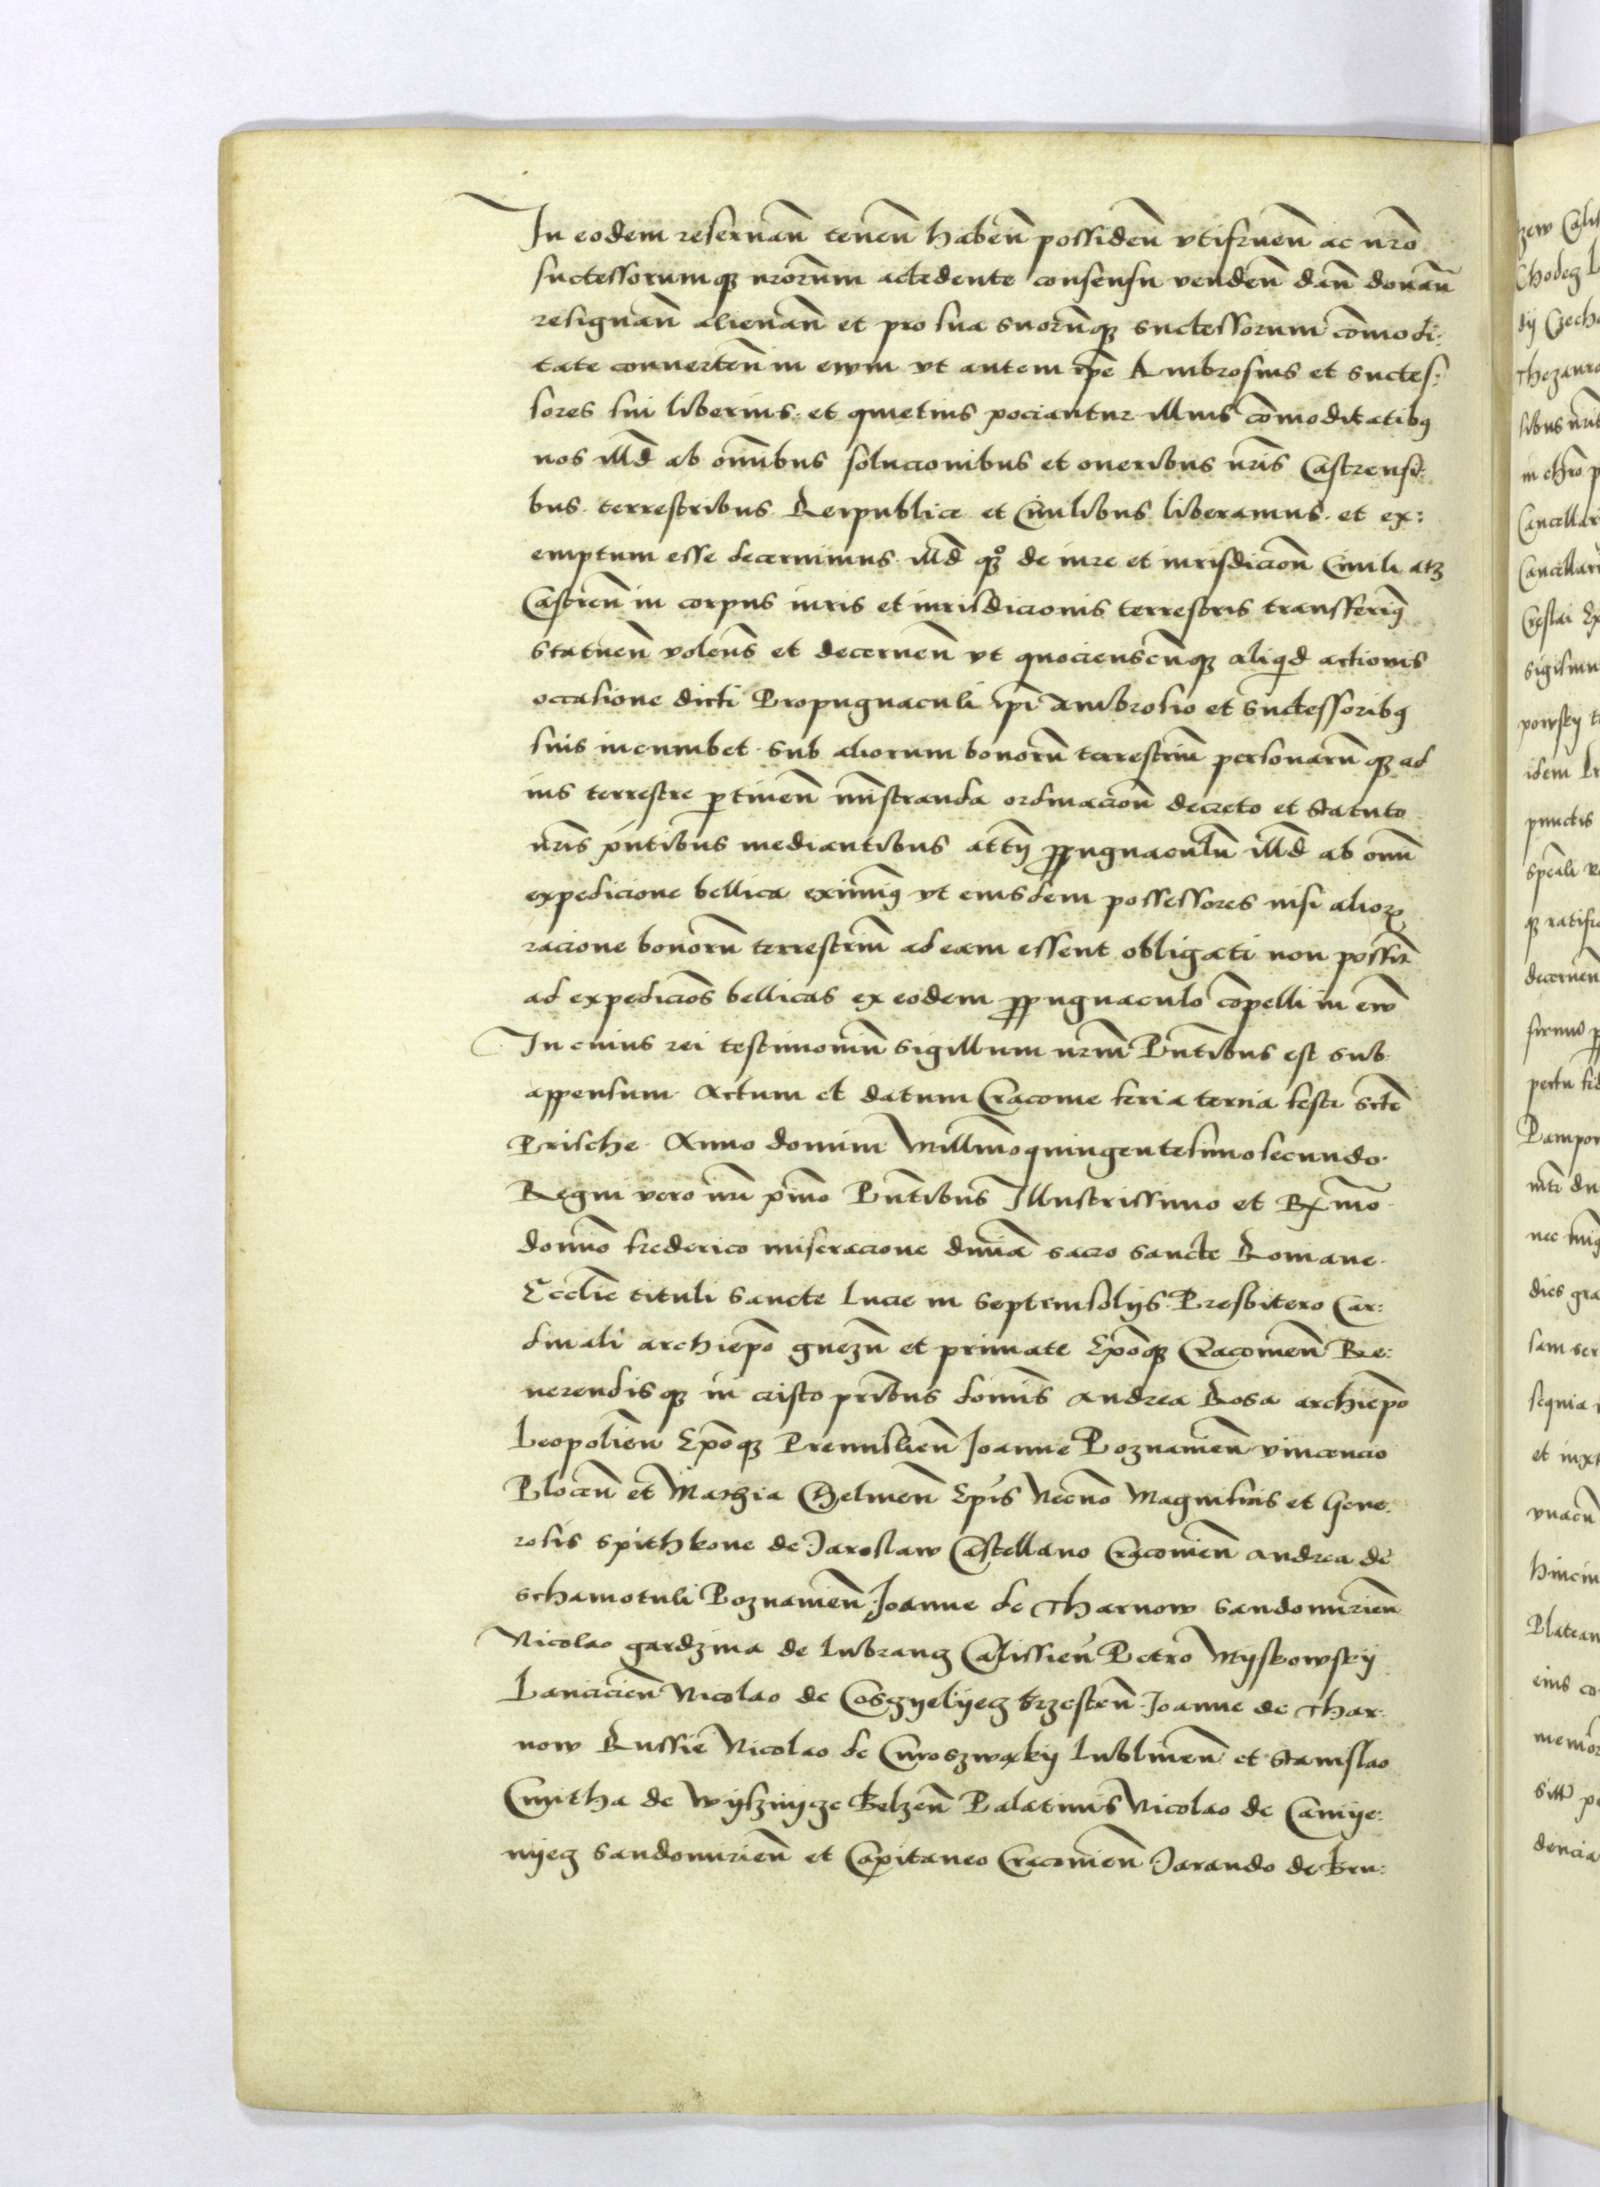 In eodem reservan̄ tenen̄ haben̄ possiden̄ vtifruen̄ ac nr̄o
successorumqȝ nr̄orum accedente consensu venden̄ dan̄ donan̄
resignan̄ alienan̄ et pro sua suorūqȝ successorum cōmodi:
tate converten̄ in ewm vt autem ip̄e Ambrosius et succes:
sores sui liberius et quietius pociantur illius cōmoditatibꝰ
nos illd̄ ab om̄ibus solucionibus et oneribus nr̄is Castrensi:
bus terrestribus Reipublice et Civilibus liberamus et ex:
emptum esse decernimus illd̄ qȝ de iure et iurisdiciōn Civili atȝ
Castren̄ in corpus iuris et iurisdicionis terrestris transferimꝰ
Statuen̄ volens̄ et decernen̄ vt quocienscūqȝ aliqd̄ actionis
occasione dicti Propugnaculi ip̄i Ambrosio et successoribꝰ
suis incumbet sub aliorum bonorū terrestriū personarūqȝ ad
ius terrestre ꝑtinen̄ mīstranda ordinaciōn decreto et statuto
nr̄is pn̄tibus mediantibus attn̄ ꝓpugnaculū illd̄ ab om̄i
expedicione bellica eximimꝰ vt eiusdem possessores nisi alioꝝ
racione bonorū terrestriū ad eam essent obligati non possint̄
ad expediciōs bellicas ex eodem ꝓpugnaculo cōpelli in ew̄
In cuius rei testimoniū sigillum nr̄m Pn̄tibus est sub
appensum Actum et datum Cracovie feria tercia festi sc̄te
Prische Anno domini Millīmoquingentesimosecundo
Regni vero nr̄i pīmo Pn̄tibus Illustrissimo et R̄x̄mo
domīo frederico miseracione divīa sacro sancte Romane
Ecclīe tituli sancte lucie in septemsolijs Presbitero Car:
dinali archiepō gnezn̄ et primate Epōqȝ Cracovien̄ Re:
verendisqȝ in cristo pr̄ibus domīs Andrea Rosa archiepō
Leopolien̄ Epōqȝ Premislien̄ Joanne Poznanien̄ vincencio
Plocen̄ et Mathia Chelmen̄ Ep̄is Necnō Magnificis et Gene:
rosis Spithkone de Jaroslaw Castellano Cracovien̄ Andrea de
schamotuli Poznanien̄ Joanne de Tharnow Sandomirien̄
Nicolao gardzina de lubrancz Calissien̄ Petro Myskowsky
Lancicien̄ Nicolao de Cosczyelyecz brzesten̄ Joanne de Thar:
now Russie Nicolao de Curoszwąky lublinen̄ et Stanislao
Cmytha de Wysznycze Belzen̄ Palatinis Nicolao de Camye:
nyecz Sandomirien̄ et Capitaneo Cracovien̄ Jarando de Bru: